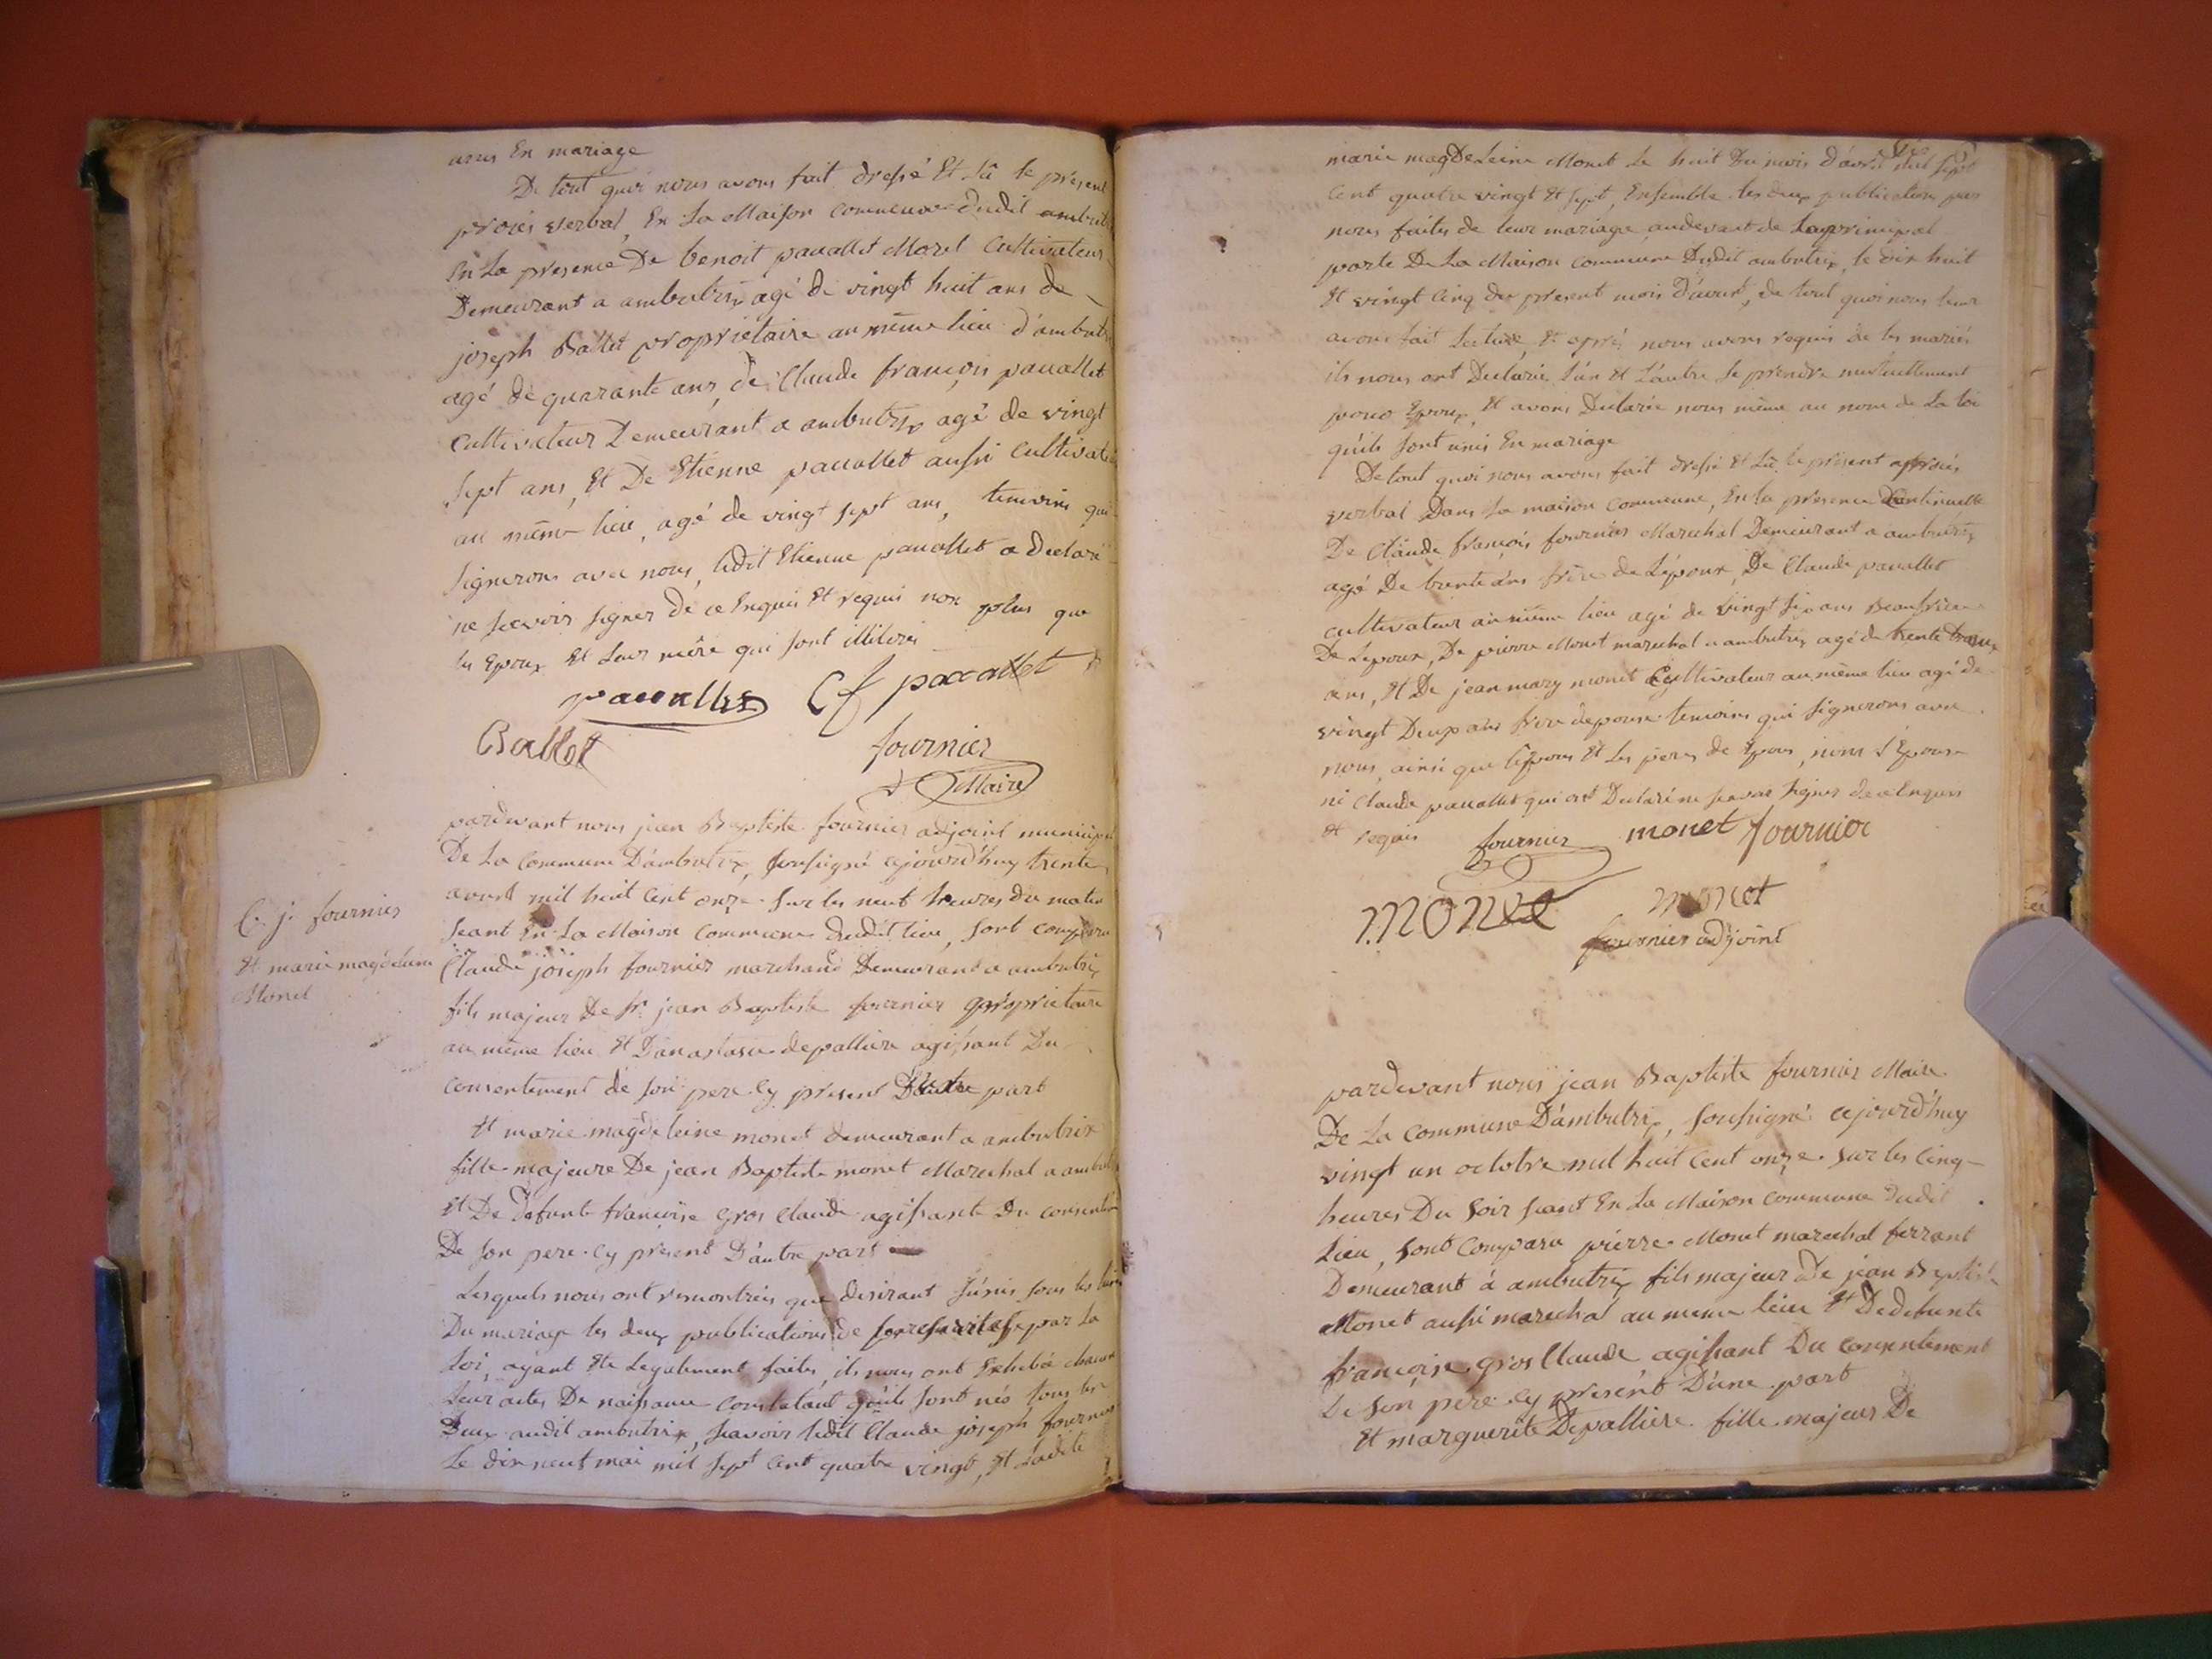 unis En mariage
De tout quoi nous avons fait dressé Et Lû le present
procés verbal, En La Maison commune dudit ambutrix
En La presence De benoit pauallet Morel Cultivateur
Demeurant a ambutrix agé de vingt huit ans de
joseph Ballet proprietaire au même lieu d'ambutrix
agé de quarante ans, de Claude françois pauallet
Cultivateur Demeurant a ambutrix agé de vingt
sept ans, Et De Etienne pauallet aussi Cultivateur
au même lieu, agé de vingt sept ans, temoins qui
signerons avec nous, ledit Etienne pauallet a declaré
ne scavoir signer de ce Enquis Et requis non plus que
les Epoux Et Leur mére qui sont illiterés
pauallet Cf pauallet
Ballet fournier
Maire
pardevant nous jean Baptiste fournier adjoint municipal
De La Commune D'ambutrix, soussigné cejourd'huy trente
avril mil huit Cent onze sur les neuf heures du matin
seant En La Maison Commune dudit lieu, sont comparu
C. j. fournier
Et marie magdeleine
Monet
Claude joseph fournier marchand Demeurant a ambutrix
fils majeur De sr. jean Baptiste fournier proprietaire
au même lieu Et D'anastasie depalliere agissant Du
consentement de son pere cy present D'autre part
Et marie magdeleine monet demeurant a ambutrix
fille majeure De jean Baptiste monet Marechal a ambutrix
Et De defunte françoise gros Claude agissante Du consentement
De son pere cy present D'autre part
Lesquels nous ont remontrés que desirant s'unir sous les liens
Du mariage les deux publications de par La
Loi, ayant Eté Legalement faites, ils nous ont Exhibé chacun
Leur actes De naissance constatant qu'ils sont nés tous les
Deux audit ambutrix, scavoir ledit Claude joseph fournier
Le dix neuf mai mil sept Cent quatre vingt, Et Ladite
marie magdeleine Monet Le huit Du mois d'avril mil sept
Cent quatre vingt Et sept, Ensemble les deux publications par
nous faites de leur mariage audevant de La principal
porte De La Maison commune Dudit ambutrix, le dix huit
Et vingt Cinq du present mois d'avril, de tout quoi nous leur
avons fait Lecture, Et aprés nous avons requis de les mariés
ils nous ont Declarié L'un Et L'autre se prendre mutuellement
pour Epoux, Et avons Declarée nous même au nom de La loi
qu'ils sont unis En mariage
De tout quoi nous avons fait dressé Et Lû le present procés
verbal Dans La maison commune, En la presence Continuelle
De Claude françois fournier Marechal Demeurant a ambutrix
agé De trente ans frère de L'epoux, De Claude pauallet
cultivateur au même lieu agé de vingt six ans Beaufrere
De Lepoux, De pierre Monet marechal a ambutrix agé de trente
ans, Et De jean mary monet Cultivateur au même lieu agé de
vingt Deux ans frere depouse temoins qui signerons avec
nous, ainsi que l'Epoux Et Les peres de Epoux, nom L'Epouse
ni Claude pauallet qui ont Declaré ne scavoir signer de ce Enquis
Et requis fournier monet fournier
monet monet
fournier adjoint
pardevant nous jean Baptiste fournier Maire
De La commune D'ambutrix, soussigné cejourd'huy
vingt un octobre mil huit Cent onze sur les Cinq
heures Du soir seant En La Maison commune dudit
Lieu, sont Comparu pierre Monet marechal ferrant
Demeurant à ambutrix fils majeur De jean Baptiste
Monet aussi marechal au meme lieu Et De defunte
françoise gros Claude agissant Du consentement
De son pére cy present D'une part
Et marguerite Depalliere fille majeur De